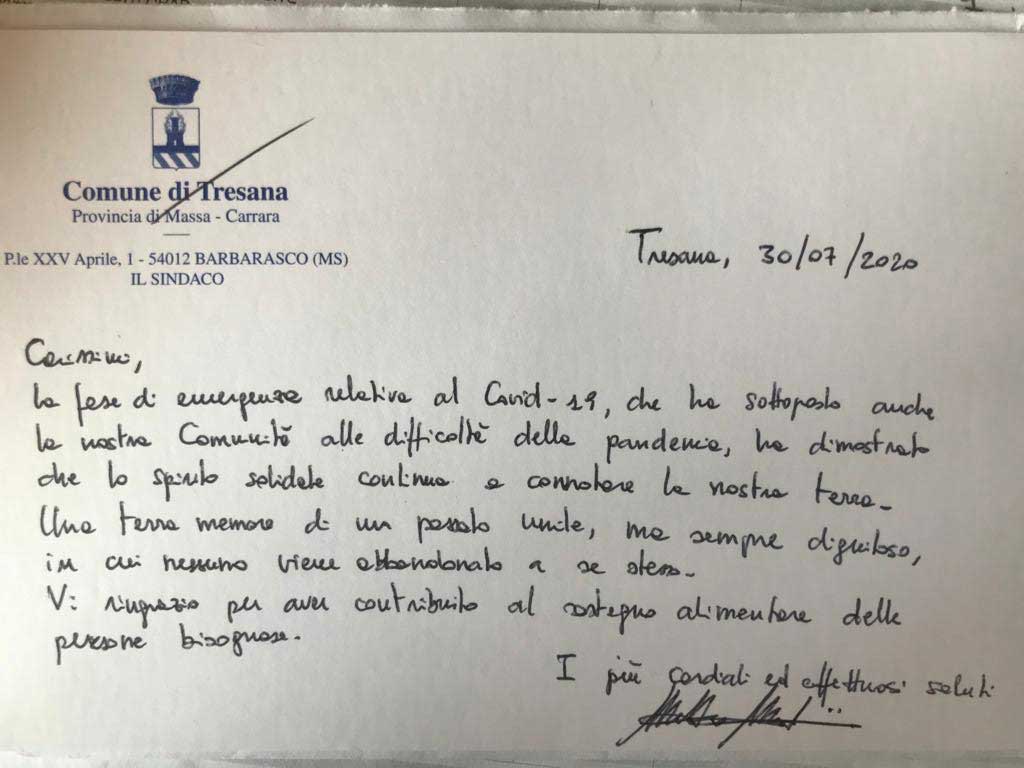 Comune di Tresana
Provincia di Massa - Carrara
P.le XXV Aprile, 1 - 54012 BARBARASCO (MS)
IL SINDACO
Tresana, 30/07/2020
Carissimi,
la fase di emergenza relativa al Covid-19, che ha sottoposto anche
la nostra Comunità alle difficoltà della pandemia, ha dimostrato
che lo spirito solidale continua a connotare la nostra terra.
Una terra memore di un passato umile, ma sempre dignitoso,
in cui nessuno viene abbandonato a se stesso.
Vi ringrazio per aver contribuito al sostegno alimentare delle
persone bisognose.
I più cordiali ed affettuosi saluti